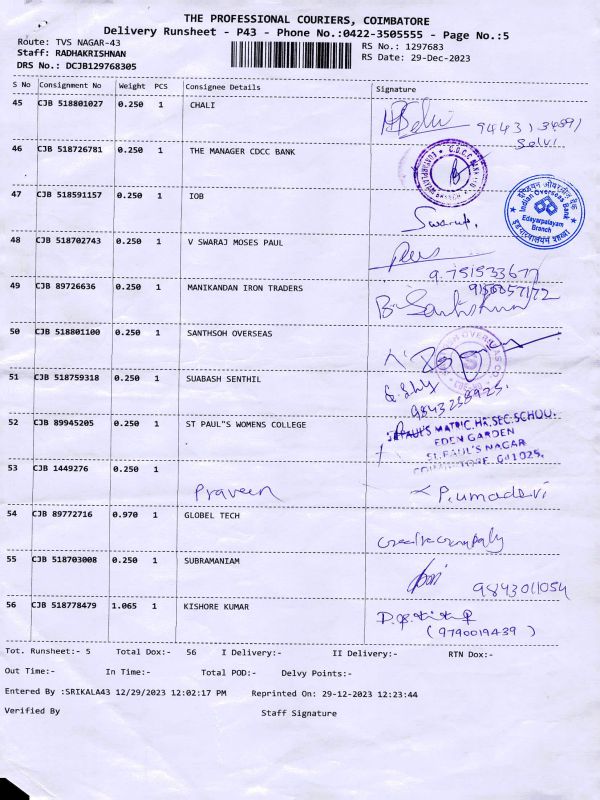 THE PROFESSIONAL COURIERS, COIMBATORE
Delivery Runsheet - P43 - Phone No.:0422-3505555 - Page No.:5
Route: TVS NAGAR-43
RS No.: 1297683
Staff: RADHAKRISHNAN
RS Date: 29-Dec-2023
DRS No.: DCJB129768305
S No Consignment No Weight PCS Consignee Details Signature
45 CJB 518801027 0.250 1 CHALI
Selvi
46 CJB 518726781 0.250 1 THE MANAGER CDCC BANK
47 CJB 518591157 0.250 1 IOB
Indian Overseas Bank
Edayarpalayam
Branch
Swaraj.
48 CJB 518702743 0.250 1 V SWARAJ MOSES PAUL
9.751533677
49 CJB 89726636 0.250 1 MANIKANDAN IRON TRADERS
50 CJB 518801100 0.250 1 SANTHSOH OVERSEAS
51 CJB 518759318 0.250 1 SUABASH SENTHIL
52 CJB 89945205 0.250 1 ST PAUL"S WOMENS COLLEGE
ST.PAUL'S MATRIC.HR.SEC.SCHOOL
EDEN GARDEN
ST.PAUL'S NAGAR
COIMBATORE, 641025.
53 CJB 1449276 0.250 1
Praveen
P.umadevi
54 CJB 89772716 0.970 1 GLOBEL TECH
55 CJB 518703008 0.250 1 SUBRAMANIAM
9843011054
56 CJB 518778479 1.065 1 KISHORE KUMAR
(9790019439)
Tot. Runsheet:- 5 Total Dox:- 56 I Delivery:- II Delivery:- RTN Dox:-
Out Time:- In Time:- Total POD:- Delvy Points:-
Entered By :SRIKALA43 12/29/2023 12:02:17 PM Reprinted On: 29-12-2023 12:23:44
Verified By Staff Signature